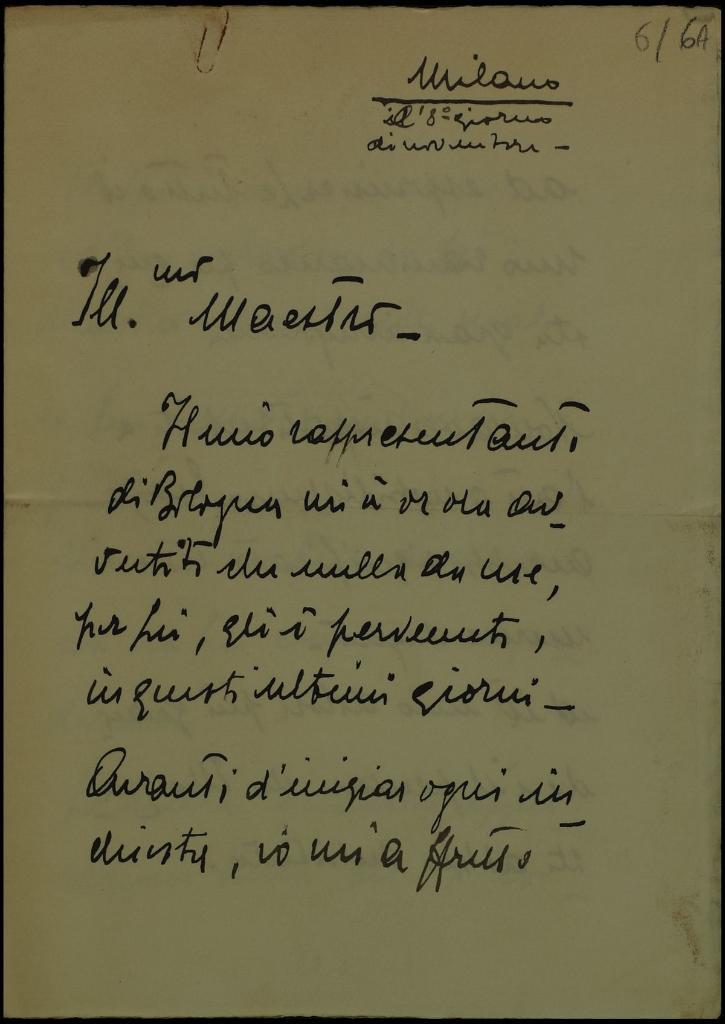 6/6A
Milano
il 8° giorno
di novembre –
Ill.mo Maestro –
Il mio rappresentante
di Bologna mi à or ora av_
vertito che nulla da me,
per Lei, gli è pervenuto,
in questi ultimi giorni –
Avanti d'iniziar ogni in_
chiesta, io mi affretto